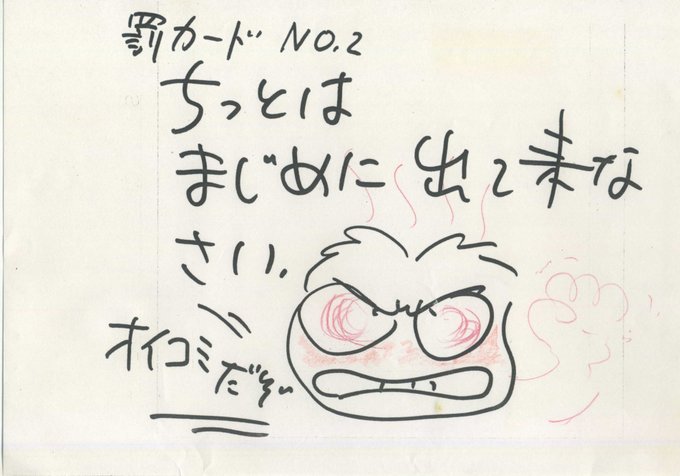 罰カード NO.2
ちっとは
まじめに出て来な
さい.
オイコミだぞぃ